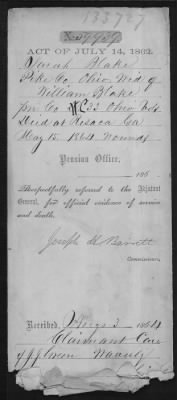 133727
ACT OF JULY 14, 1862.
Sarah Blake
Pike Co. Ohio Wid of
William Blake
33 Ohio Vols
Died at Resaca Ga
May 15 1864 Wounds
Pension Office,
186
Respectfully referred to the Adjutant
General, for official evidence of service
and death.
Joseph H Barrett
Commissioner.
Received, 3 1864
Claimant Care